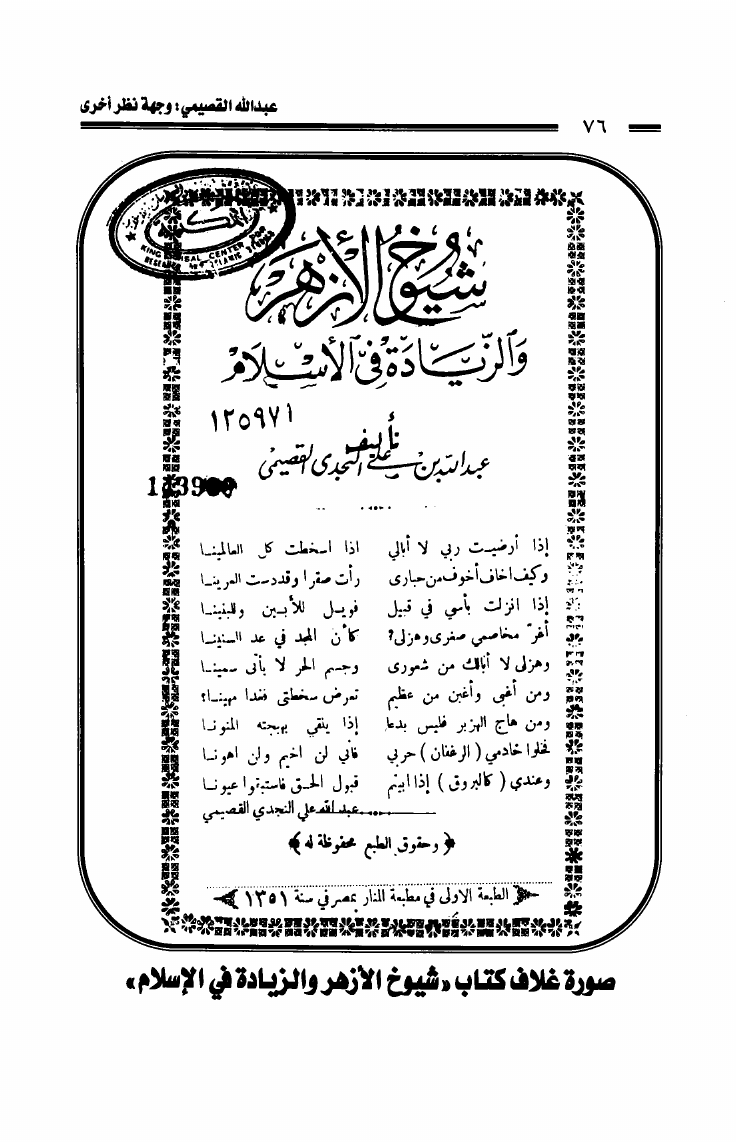 عبدالله القصيمي: وجهة نظر أخرى
٧٦
KING FAISAL CENTER FOR
RESEARCH AND ISLAMIC STUDIES
شُيُوخُ الأَزْهَرِ
وَالزِّيَادَةُ فِي الأَسْلَام
١٢٥٩٧١
تأليف
عبدالله بن علي النجدى القصيمى
إذا أرضيت ربي لا أبالي اذا اسخطت كل العالمينـا
وكيف اخاف أخوف من حبارى رأت صقرا وقد دست العرينـا
إذا انزلت بأسي في قبيل فويـل للأبـين وللبنينـا
أغرّ مخاصمي صغرى وهزلى؟ كأن المجد في عد السنينـا
وهزلى لا أبالك من شعورى وجسم الحر لا يأتى سمينـا
ومن أغبى وأغبن من عظيم تعرض سخطتى فغدا مهينـا؟
ومن هاج الهزبر فليس بدعا إذا يلقي بهجته المنونـا
فخلوا خادمي (الرغفان) حربي فاني لن اخيم ولن اهونـا
وعندي (كالبروق) إذا ابيتم قبول الحـق فاستبقوا عيونـا
عبد الله علي النجدي القصيمي
﴿ وحقوق الطبع محفوظة له ﴾
الطبعة الاولى في مطبعة المنار بمصر في سنة ١٣٥١
صورة غلاف كتاب «شيوخ الأزهر والزيادة في الإسلام»